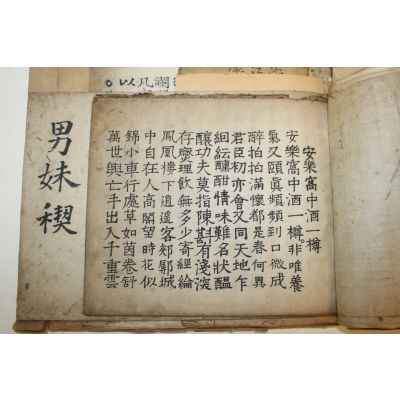 安樂窩中酒一樽
安樂窩中酒一樽非唯養
氣又頤眞頻頻到口微成
醉拍拍滿懷都是春何異
君臣初亦會又同天地乍
絪紜醺酣情味難名狀醞
釀功夫莫指陳斟有淺深
存燮理飲無多少寄經綸
鳳凰樓下逍遙客郟鄏城
中自在人高閣望時花似
錦小車行處草如茵卷舒
萬世興亡手出入千重雲
男妹稧
以凡瀾